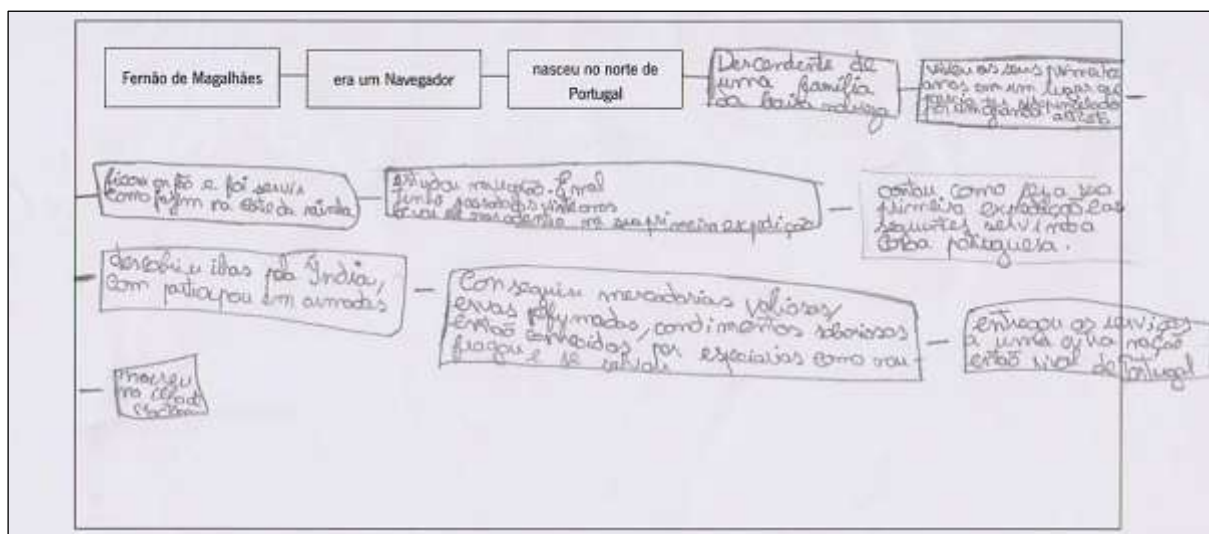 Fernão de Magalhães
era um Navegador
nasceu no norte de
Portugal
Descendente de
uma família
da baixa nobreza
viveu os seus primeiros
anos em um lugar que
ficou orfão e foi servir
como pajem na corte da rainha
estudou navegação. E mal
tinha passado os vinte anos
na sua primeira expedição
contou como foi a sua
primeira expedição e as
seguintes servindo a
coroa portuguesa.
descobriu ilhas pela Índia,
com participou em armadas
Conseguiu mercadorias valiosas,
ervas perfumadas, condimentos saborosos
então conhecidos, por especiarias como nau
fragou e se
entregou os serviços
a uma outra nação
então rival de Portugal
morreu